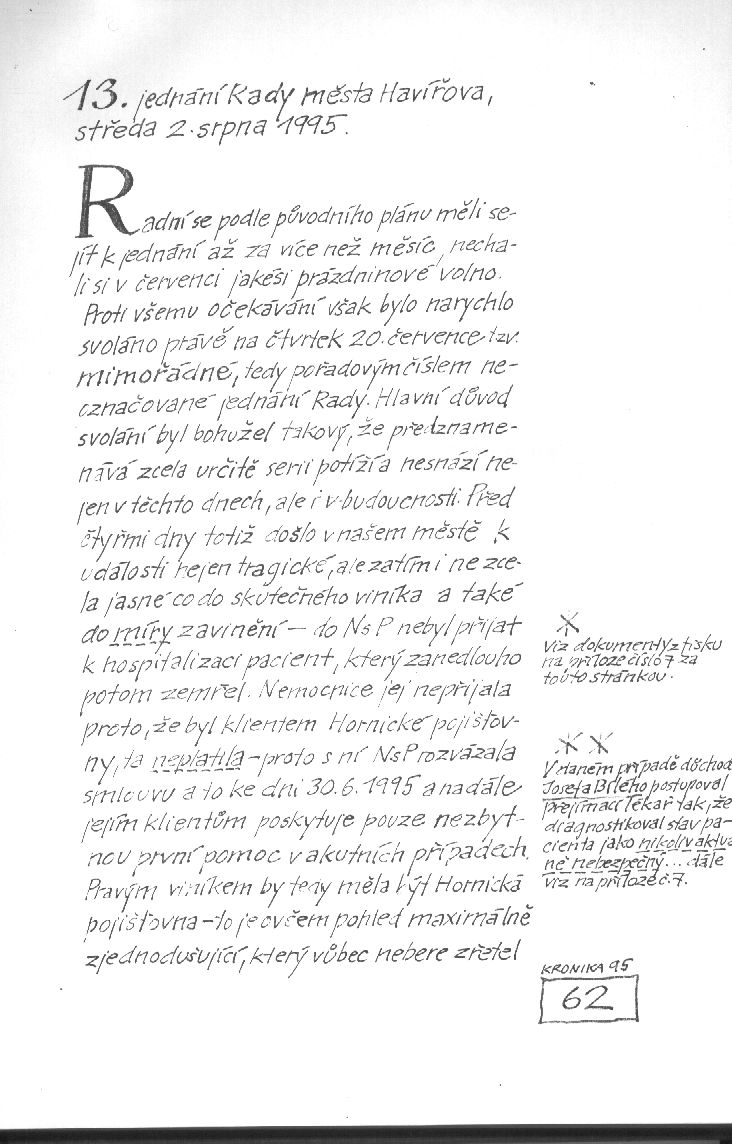 13. jednání Rady města Havířova,
středa 2. srpna 1995.
Radní se podle původního plánu měli se-
jít k jednání až za více než měsíc, necha-
li si v červenci jakési prázdninové volno.
Proti všemu očekávání však bylo narychlo
svoláno právě na čtvrtek 20. července tzv.
mimořádné, tedy pořadovým číslem ne-
označované jednání Rady. Hlavní důvod
svolání byl bohužel takový, že předzname-
nává zcela určitě serii potíží a nesnází ne-
jen v těchto dnech, ale i v budoucnosti. Před
čtyřmi dny totiž došlo v našem městě k
události nejen tragické, ale zatím i ne zce-
la jasné co do skutečného viníka a také
do míry zavinění — do NsP nebyl přijat
k hospitalizaci pacient, který zanedlouho
potom zemřel. Nemocnice jej nepřijala
proto, že byl klientem Hornické pojišťov-
ny, ta neplatila – proto s ní NsP rozvázala
smlouvu a to ke dni 30.6.1995 a nadále
jejím klientům poskytuje pouze nezbyt-
nou první pomoc v akutních případech.
Pravým viníkem by tedy měla být Hornická
pojišťovna – to je ovšem pohled maximálně
zjednodušující, který vůbec nebere zřetel
*
viz dokumenty z tisku
na příloze číslo 7 za
touto stránkou.
* *
V daném případě důchod
Josefa Bílého postupoval
přejímací lékař tak, že
diagnostikoval stav pa-
cienta jako nikoliv aktu
ně nebezpečný... dále
viz na příloze č. 7.
KRONIKA 95
62